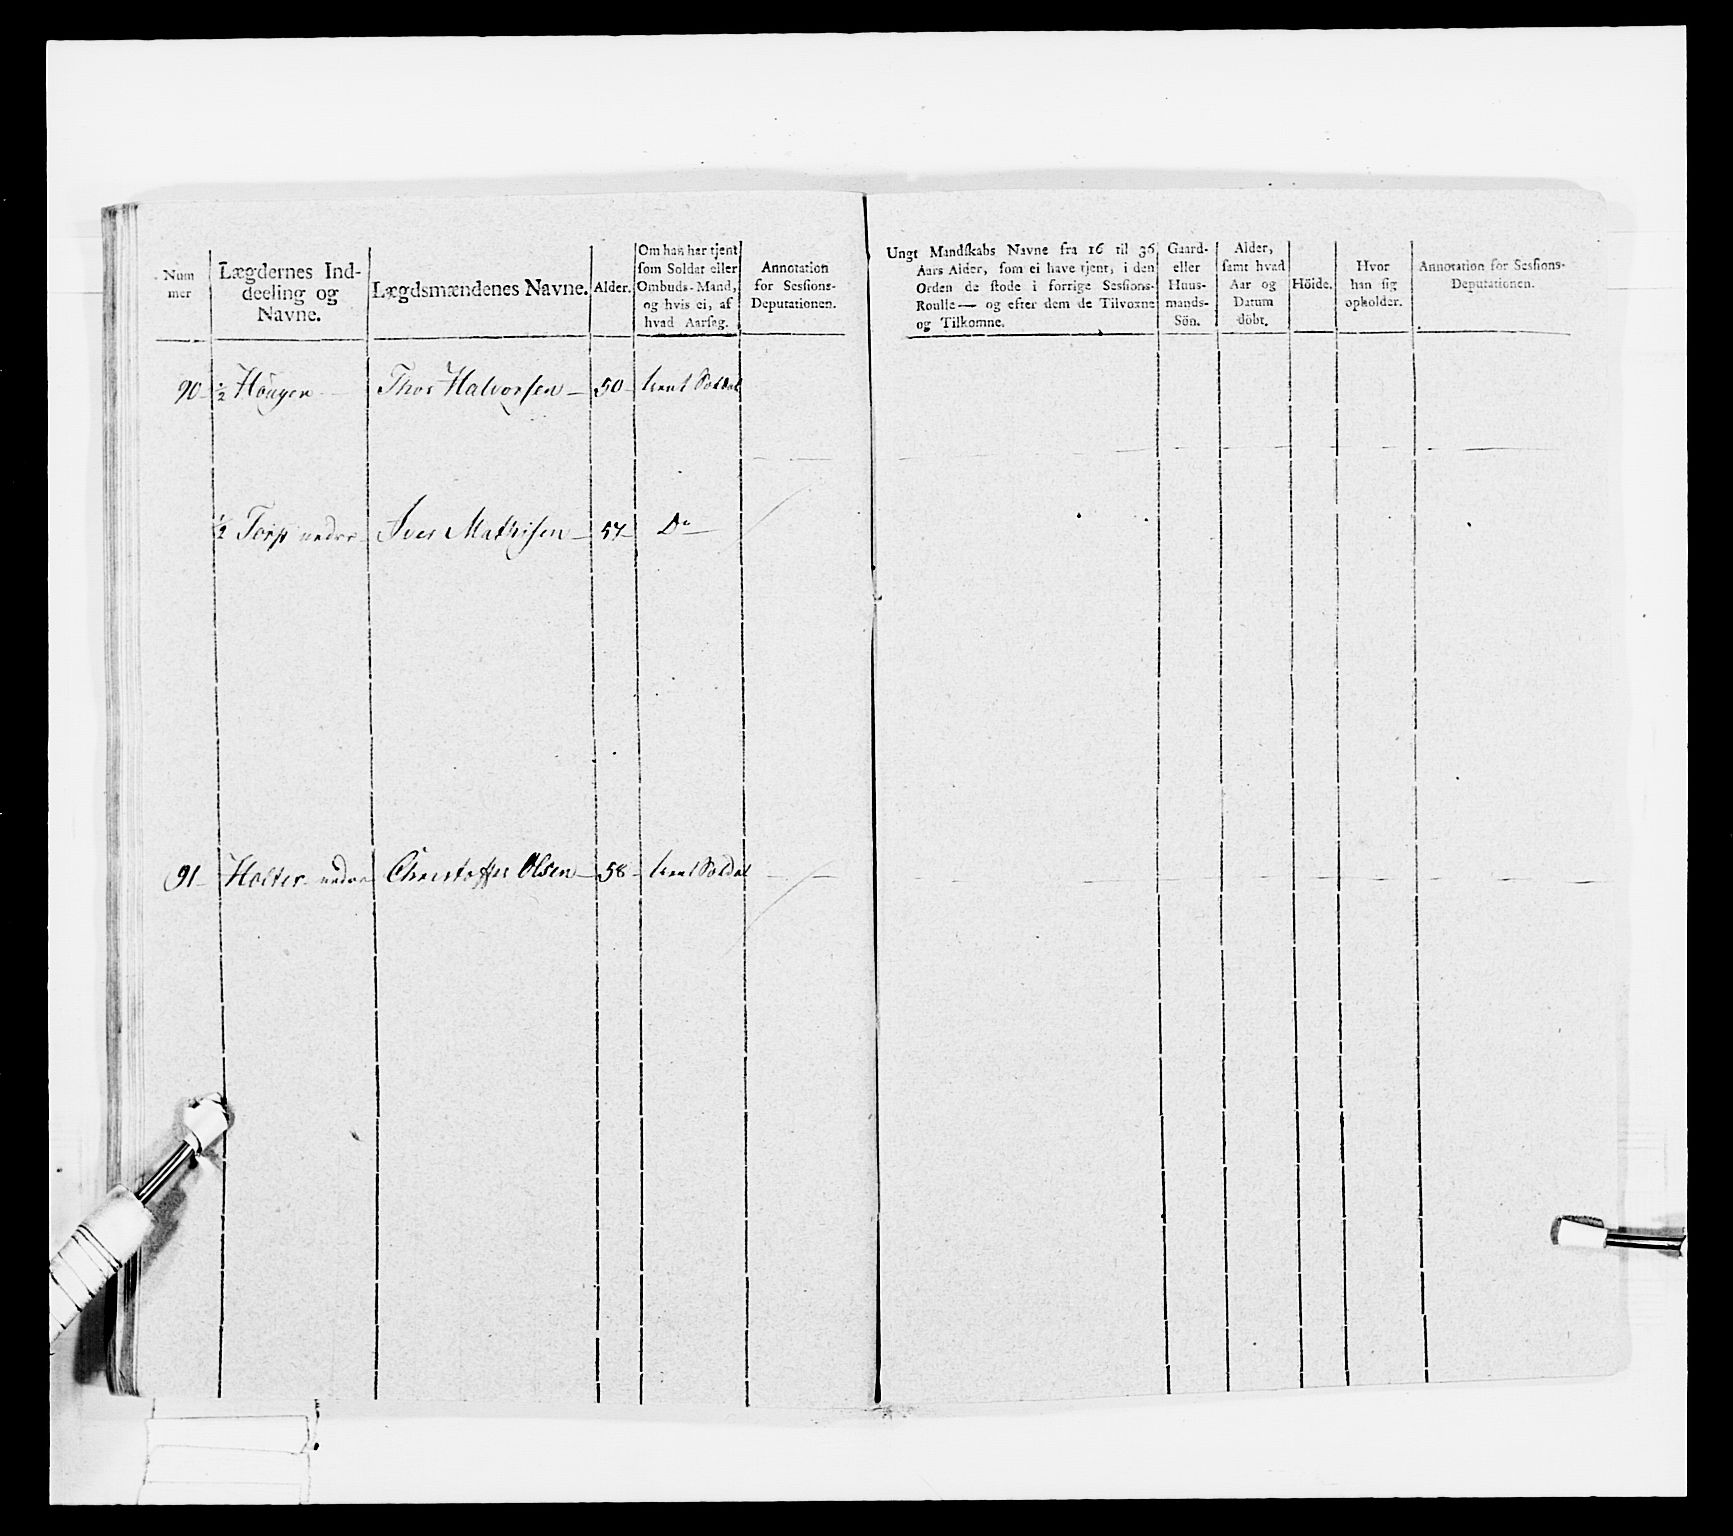 Num
mer
Lægdernes Ind-
deeling og
Navne.
Lægdsmændenes Navne.
Alder.
Om han har tjent
som Soldat eller
Ombuds-Mand,
og hvis ei, af
hvad Aarsag.
Annotation
for Sessions-
Deputationen.
Ungt Mandskabs Navne fra 16 til 36
Aars Alder, som ei have tjent, i den
Orden de stode i forrige Sessions-
Roulle — og efter dem de Tilvoxne
og Tilkomne.
Gaard-
eller
Huus-
mands-
Sön.
Alder,
samt hvad
Aar og
Datum
döbt.
Höide.
Hvor
han sig
opholder.
Annotation for Sessions-
Deputationen.
90 ½ Hougen Thor Halvorsen 50 tient Soldat
½ Torp nedre Iver Mathisen 57 Do
91 Holter nedre Christoffer Olsen 58 tient Soldat